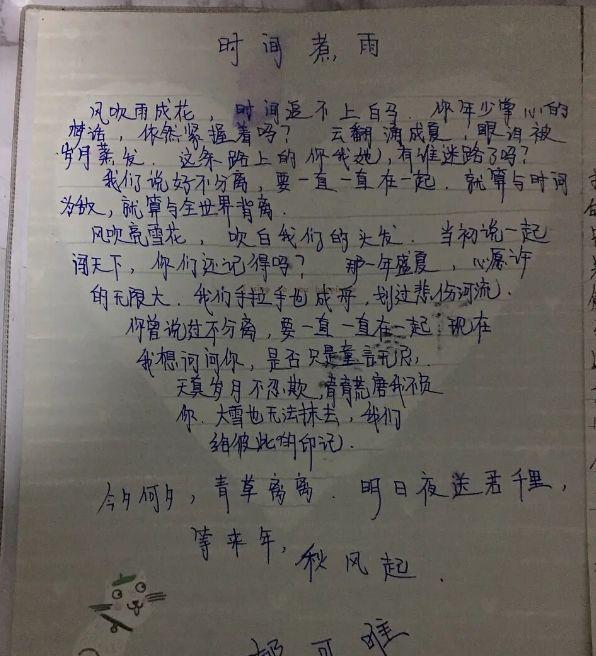 时间煮雨
风吹雨成花，时间追不上白马．你年少掌心的
梦话，依然紧握着吗？云翻涌成夏，眼泪被
岁月蒸发．这条路上的你我她，有谁迷路了吗？
我们说好不分离，要一直一直在一起．就算与时间
为敌，就算与全世界背离．
风吹亮雪花，吹白我们的头发．当初说一起
闯天下，你们还记得吗？那一年盛夏，心愿许
的无限大．我们手拉手也成舟，划过悲伤河流．
你曾说过不分离，要一直一直在一起．现在
我想问问你，是否只是童言无忌．
天真岁月不忍欺，青青荒唐我不负
你．大雪也无法抹去，我们
给彼此的印记．
今夕何夕，青草离离．明日夜送君千里，
等来年，
秋风起．
郁可唯